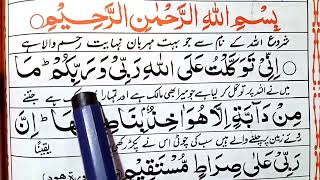 بِسْمِ اللّٰهِ الرَّحْمٰنِ الرَّحِيْمِ
شروع اللہ کے نام سے جو بہت مہربان نہایت رحم والا ہے
اِنِّیْ تَوَكَّلْتُ عَلَى اللّٰهِ رَبِّیْ وَرَبِّكُمْ ؕ مَا
میں نے اللہ پر توکل کر لیا ہے جو میرا بھی مالک ہے اور تمہارا ہے جتنے
مِنْ دَآبَّةٍ اِلَّا هُوَ اٰخِذٌۢ بِنَا ؕ اِنَّ
زمین پر چلنے والے ہیں سب کی چوٹی اس نے پکڑ یقیناً
رَبِّیْ عَلٰى صِرَاطٍ مُّسْتَقِيْمٍ